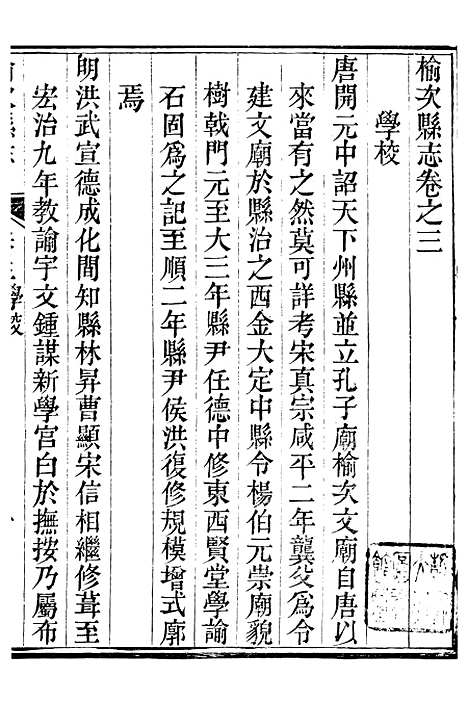 榆次縣志卷之三
學校
唐開元中詔天下州縣並立孔子廟榆次文廟自唐以
來當有之然莫可詳考宋真宗咸平二年龔父為令
建文廟於縣治之西金大定中縣令楊伯元崇廟貌
樹戟門元至大三年縣尹任德中修東西賢堂學諭
石固為之記至順二年縣尹侯洪復修規模增式廓
焉
明洪武宣德成化間知縣林昇曹顯宋信相繼修葺至
宏治九年教諭宇文鍾謀新學官白於撫按乃屬布
學校